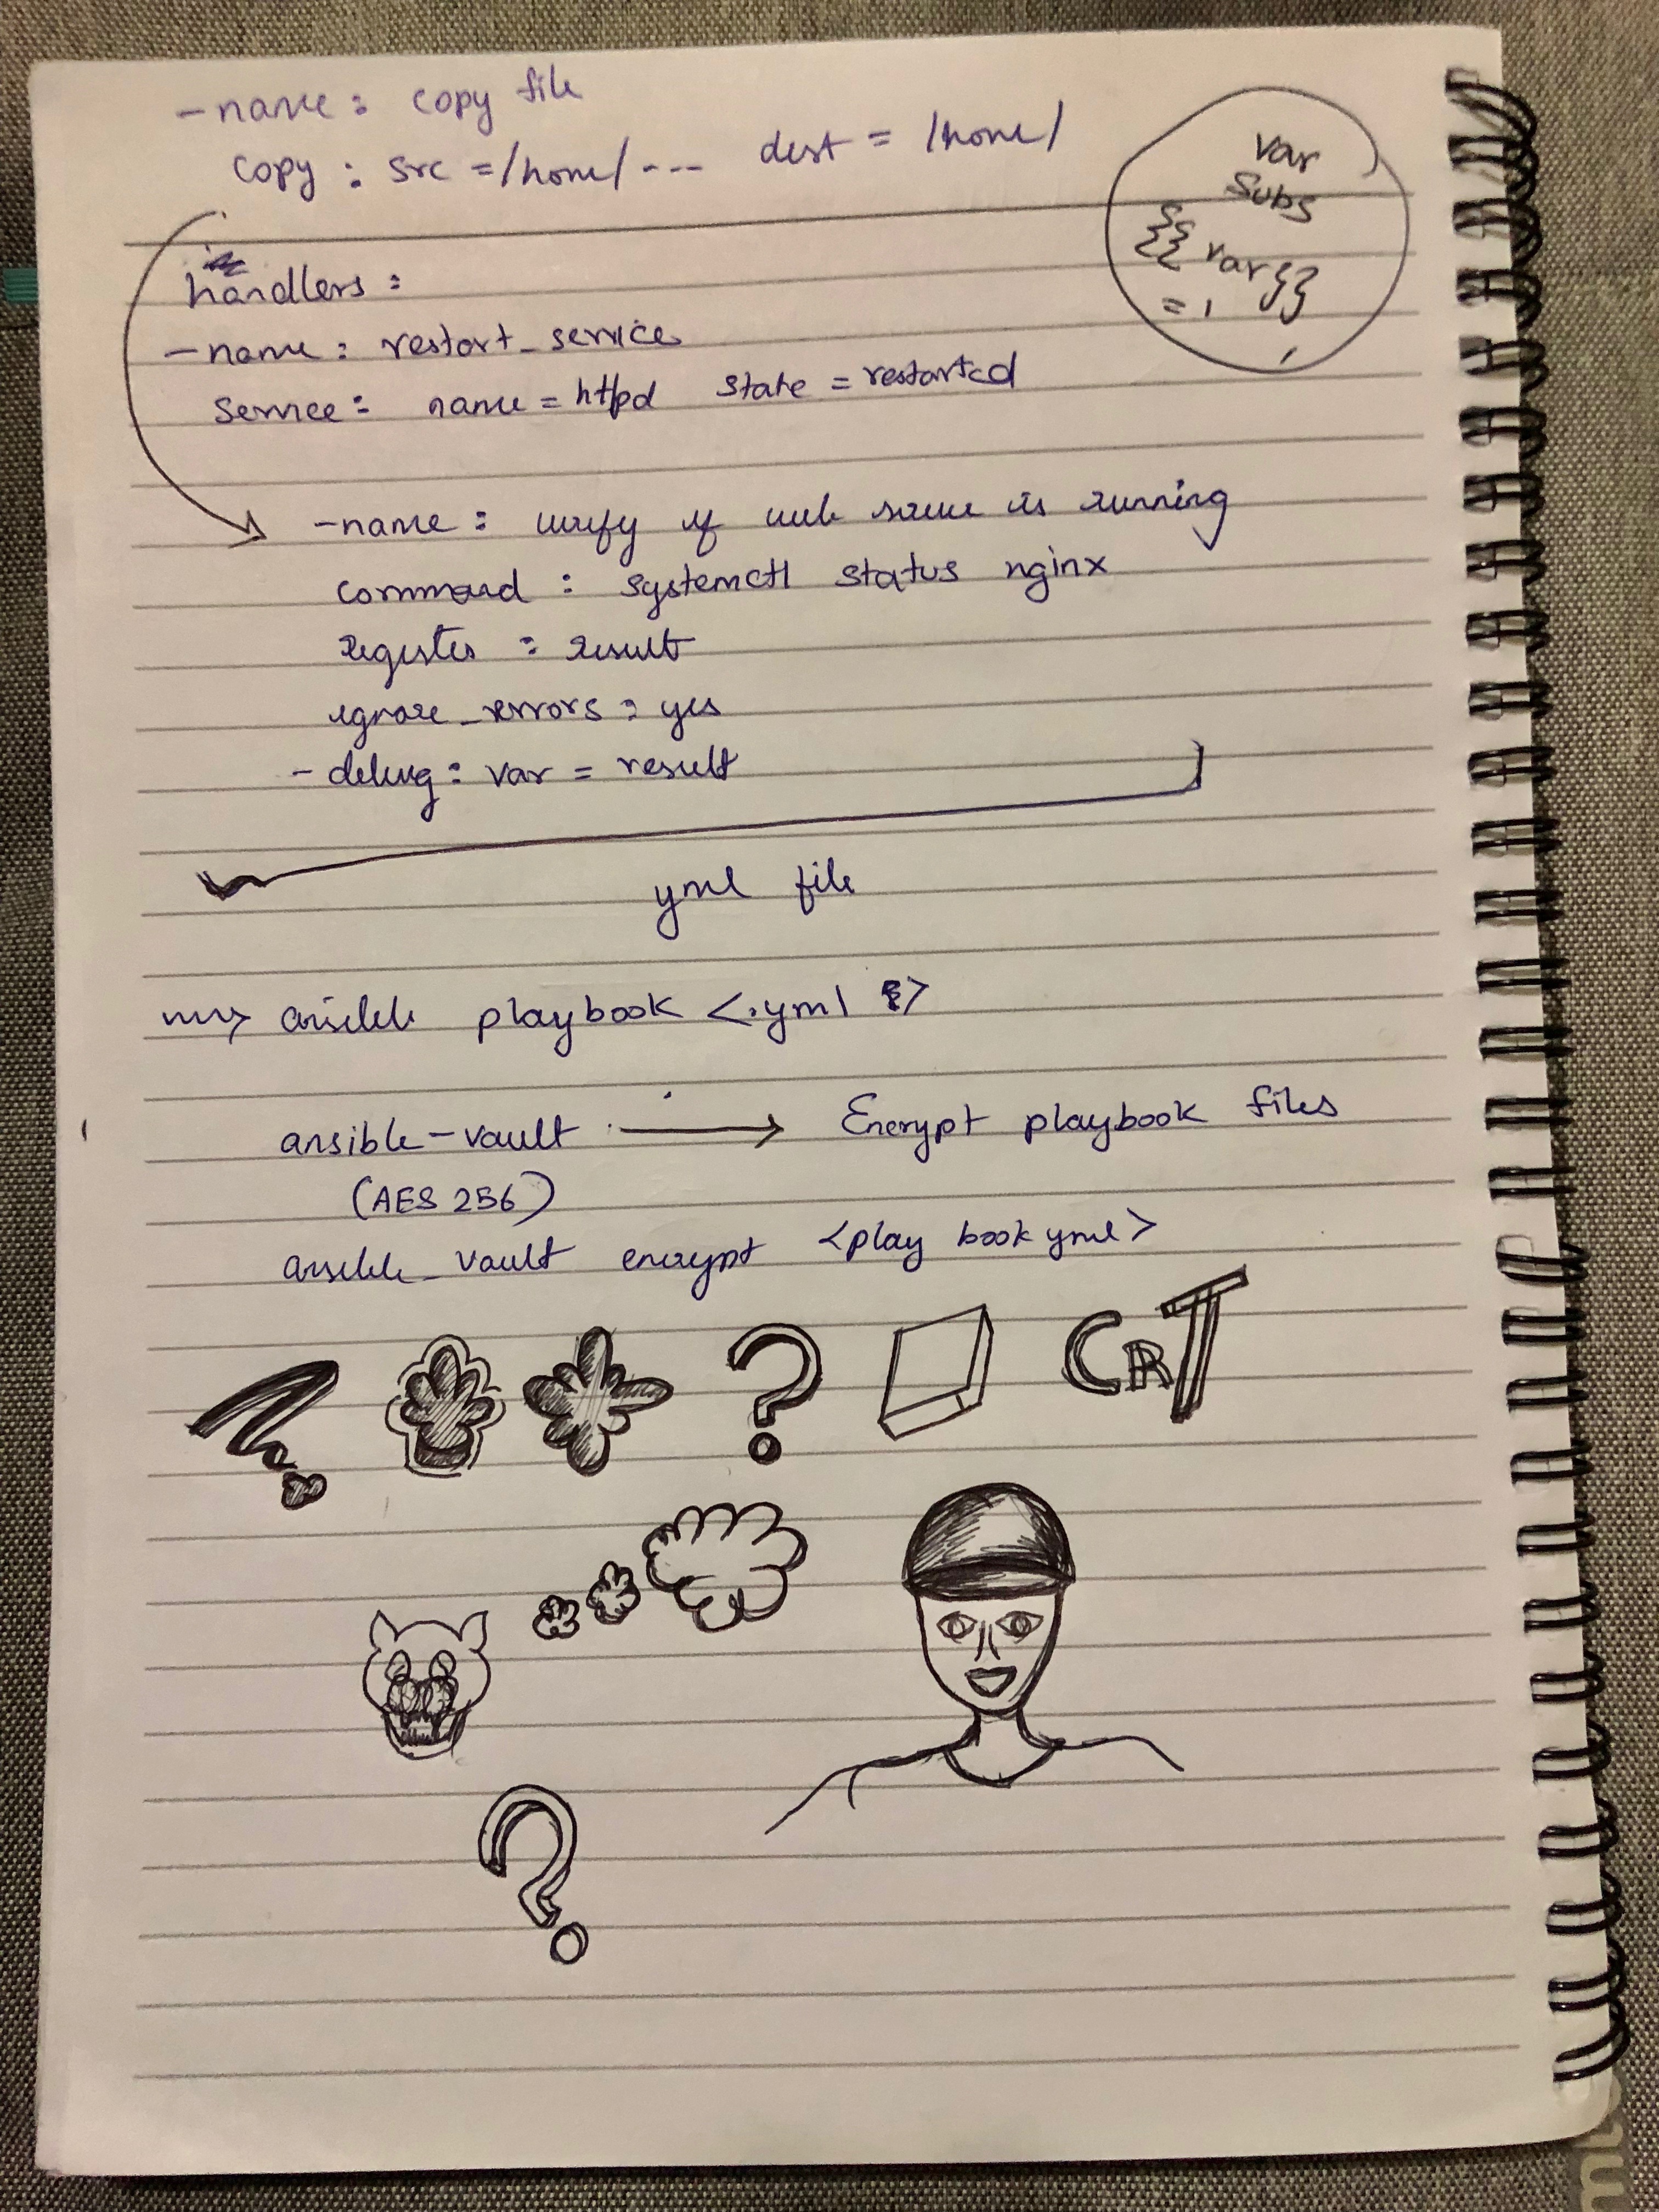 - name : copy file
copy : src = /home/ --- dest = /home/
var
subs
{{ var }}
= 1
handlers :
- name : restart_service
service : name = httpd state = restarted
- name : verify if web is running
command : systemctl status nginx
register : result
ignore_errors : yes
- debug : var = result
yml file
ansible playbook <.yml >
ansible-vault → Encrypt playbook files
(AES 256)
ansible_vault encrypt <play book yml>
? CRT
?